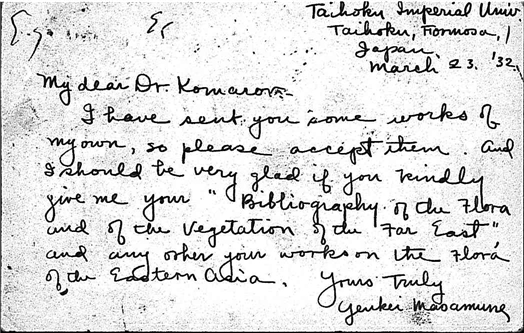 Taihoku Imperial Univ
Taihoku, Formosa,
Japan
March 23. '32.
My dear Dr. Komarov
I have sent you some works of
my own, so please accept them. And
I should be very glad if you kindly
give me your "Bibliography of the Flora
and of the Vegetation of the Far East"
and any other your works on the Flora
of the Eastern Asia. Yours Truly
Genkei Masamune